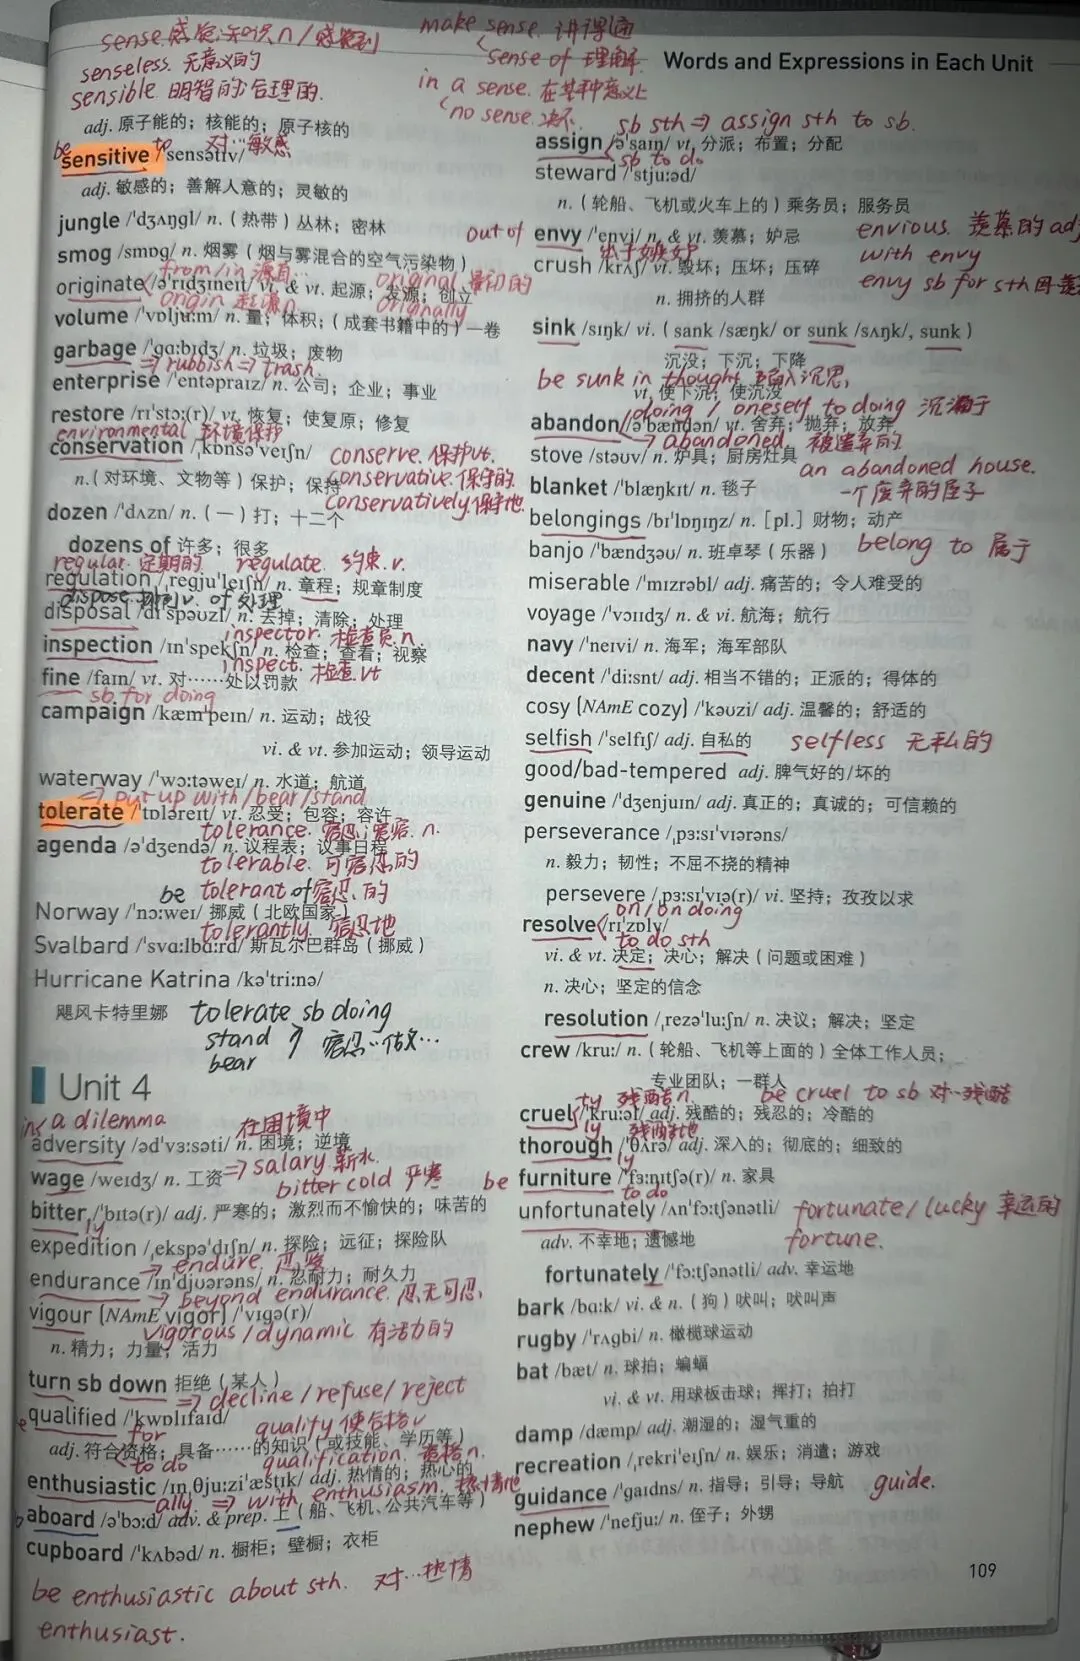 sense.感觉;知识 n / 感觉到
senseless. 无意义的
sensible. 明智的;合理的.
make sense. 讲得通
sense of 理解
in a sense. 在某种意义上
no sense. 决不
Words and Expressions in Each Unit
adj. 原子能的；核能的；原子核的
be to 对…敏感
sensitive /ˈsensətɪv/
adj. 敏感的；善解人意的；灵敏的
jungle /ˈdʒʌŋgl/ n.（热带）丛林；密林
smog /smɒg/ n. 烟雾（烟与雾混合的空气污染物）
from/in 源自… original 最初的
originate /əˈrɪdʒɪneɪt/ vi. & vt. 起源；发源；创立
origin 起源 n originally
volume /ˈvɒljuːm/ n. 量；体积；（成套书籍中的）一卷
garbage /ˈgɑːbɪdʒ/ n. 垃圾；废物
⇒ rubbish ⇒ trash.
enterprise /ˈentəpraɪz/ n. 公司；企业；事业
restore /rɪˈstɔː(r)/ vt. 恢复；使复原；修复
environmental 环境保护
conservation /ˌkɒnsəˈveɪʃn/ conserve. 保护vt.
n.（对环境、文物等）保护；保持 conservative. 保守的.
conservatively 保守地.
dozen /ˈdʌzn/ n.（一）打；十二个
dozens of 许多；很多
regular. 定期的 regulate. 约束.v.
regulation /ˌregjuˈleɪʃn/ n. 章程；规章制度
dispose v. of 处理
disposal /dɪˈspəʊzl/ n. 去掉；清除；处理
inspector. 检查员.n.
inspection /ɪnˈspekʃn/ n. 检查；查看；视察
inspect. 检查.vt
fine /faɪn/ vt. 对……处以罚款
sb for doing
campaign /kæmˈpeɪn/ n. 运动；战役
vi. & vt. 参加运动；领导运动
waterway /ˈwɔːtəweɪ/ n. 水道；航道
⇒ put up with/bear/stand
tolerate /ˈtɒləreɪt/ vt. 忍受；包容；容许
tolerance. 容忍;宽容. n.
agenda /əˈdʒendə/ n. 议程表；议事日程
tolerable. 可容忍的
be tolerant of 容忍的
Norway /ˈnɔːweɪ/ 挪威（北欧国家）
tolerantly. 容忍地
Svalbard /ˈsvɑːlbɑːrd/ 斯瓦尔巴群岛（挪威）
Hurricane Katrina /kəˈtriːnə/
飓风卡特里娜 tolerate sb doing
stand 容忍…做…
bear
Unit 4
in a dilemma 在困境中
adversity /ədˈvɜːsəti/ n. 困境；逆境
wage /weɪdʒ/ n. 工资 ⇒ salary. 薪水.
bitter cold 严寒
bitter /ˈbɪtə(r)/ adj. 严寒的；激烈而不愉快的；味苦的
ly
expedition /ˌekspəˈdɪʃn/ n. 探险；远征；探险队
→ endure. 忍受
endurance /ɪnˈdjʊərəns/ n. 忍耐力；耐久力
→ beyond endurance. 忍无可忍.
vigour (NAmE vigor) /ˈvɪgə(r)/
vigorous / dynamic 有活力的
n. 精力；力量；活力
turn sb down 拒绝（某人）
⇒ decline / refuse / reject
qualified /ˈkwɒlɪfaɪd/ qualify 使合格v
for
adj. 符合资格；具备……的知识（或技能、学历等）
to do qualification. 资格n.
enthusiastic /ɪnˌθjuːziˈæstɪk/ adj. 热情的；热心的
ally. ⇒ with enthusiasm. 热情地
aboard /əˈbɔːd/ adv. & prep. 上（船、飞机、公共汽车等）
cupboard /ˈkʌbəd/ n. 橱柜；壁橱；衣柜
be enthusiastic about sth. 对…热情
enthusiast.
sb sth ⇒ assign sth to sb.
assign /əˈsaɪn/ vt. 分派；布置；分配
sb to do
steward /ˈstjuːəd/
n.（轮船、飞机或火车上的）乘务员；服务员
out of envy /ˈenvi/ n. & vt. 羡慕；妒忌 envious. 羡慕的 adj
出于嫉妒 with envy
crush /krʌʃ/ vt. 毁坏；压坏；压碎 envy sb for sth
n. 拥挤的人群
sink /sɪŋk/ vi. ( sank /sæŋk/ or sunk /sʌŋk/, sunk )
沉没；下沉；下降
be sunk in thought. 陷入沉思.
vt. 使下沉；使沉没
doing / oneself to doing 沉湎于
abandon /əˈbændən/ vt. 舍弃；抛弃；放弃
→ abandoned. 被遗弃的
stove /stəʊv/ n. 炉具；厨房灶具 an abandoned house.
blanket /ˈblæŋkɪt/ n. 毯子 一个废弃的屋子
belongings /bɪˈlɒŋɪŋz/ n. [pl.] 财物；动产
banjo /ˈbændʒəʊ/ n. 班卓琴（乐器） belong to 属于
miserable /ˈmɪzrəbl/ adj. 痛苦的；令人难受的
voyage /ˈvɔɪɪdʒ/ n. & vi. 航海；航行
navy /ˈneɪvi/ n. 海军；海军部队
decent /ˈdiːsnt/ adj. 相当不错的；正派的；得体的
cosy (NAmE cozy) /ˈkəʊzi/ adj. 温馨的；舒适的
selfish /ˈselfɪʃ/ adj. 自私的 selfless 无私的
good/bad-tempered adj. 脾气好的/坏的
genuine /ˈdʒenjuɪn/ adj. 真正的；真诚的；可信赖的
perseverance /ˌpɜːsɪˈvɪərəns/
n. 毅力；韧性；不屈不挠的精神
persevere /ˌpɜːsɪˈvɪə(r)/ vi. 坚持；孜孜以求
on/on doing
resolve /rɪˈzɒlv/
to do sth
vi. & vt. 决定；决心；解决（问题或困难）
n. 决心；坚定的信念
resolution /ˌrezəˈluːʃn/ n. 决议；解决；坚定
crew /kruː/ n.（轮船、飞机等上面的）全体工作人员；
专业团队；一群人
ty 残酷n. be cruel to sb 对…残酷
cruel /ˈkruːəl/ adj. 残酷的；残忍的；冷酷的
ly 残酷地
thorough /ˈθʌrə/ adj. 深入的；彻底的；细致的
ly
be furniture /ˈfɜːnɪtʃə(r)/ n. 家具
to do
unfortunately /ʌnˈfɔːtʃənətli/ fortunate/lucky 幸运的
adv. 不幸地；遗憾地 fortune.
fortunately /ˈfɔːtʃənətli/ adv. 幸运地
bark /bɑːk/ vi. & n.（狗）吠叫；吠叫声
rugby /ˈrʌgbi/ n. 橄榄球运动
bat /bæt/ n. 球拍；蝙蝠
vi. & vt. 用球板击球；挥打；拍打
damp /dæmp/ adj. 潮湿的；湿气重的
recreation /ˌrekriˈeɪʃn/ n. 娱乐；消遣；游戏
guidance /ˈgaɪdns/ n. 指导；引导；导航 guide.
nephew /ˈnefjuː/ n. 侄子；外甥
109